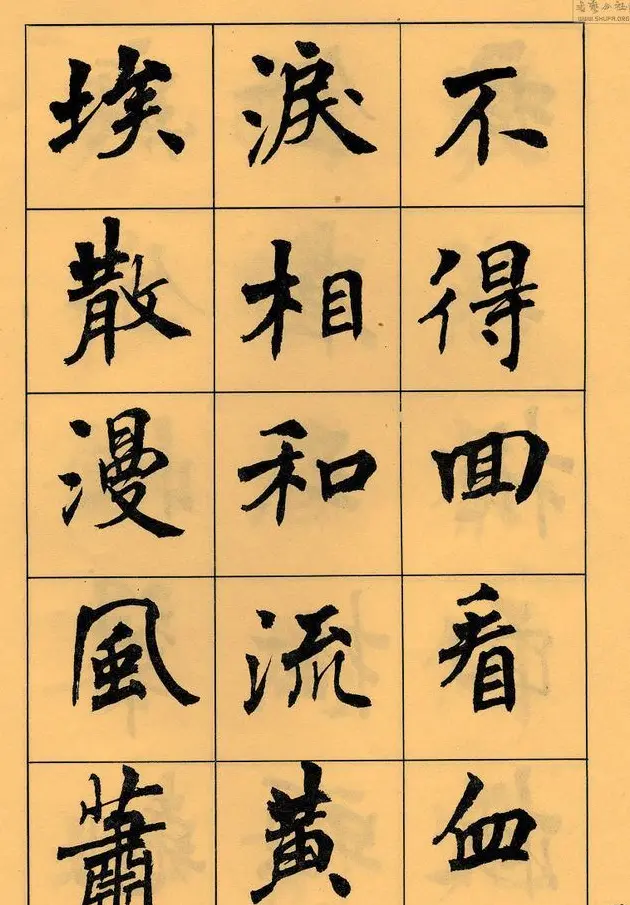 不得回看血
淚相和流黃
埃散漫風蕭
WWW.SHUFA.ORG